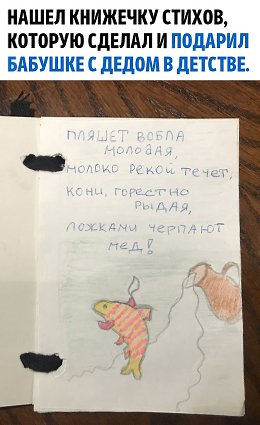 НАШЕЛ КНИЖЕЧКУ СТИХОВ,
КОТОРУЮ СДЕЛАЛ И ПОДАРИЛ
БАБУШКЕ С ДЕДОМ В ДЕТСТВЕ.
ПЛЯШЕТ ВОБЛА
МОЛОДАЯ,
МОЛОКО РЕКОЙ ТЕЧЕТ,
КОНИ, ГОРЕСТНО
РЫДАЯ,
ЛОЖКАМИ ЧЕРПАЮТ
МЕД!